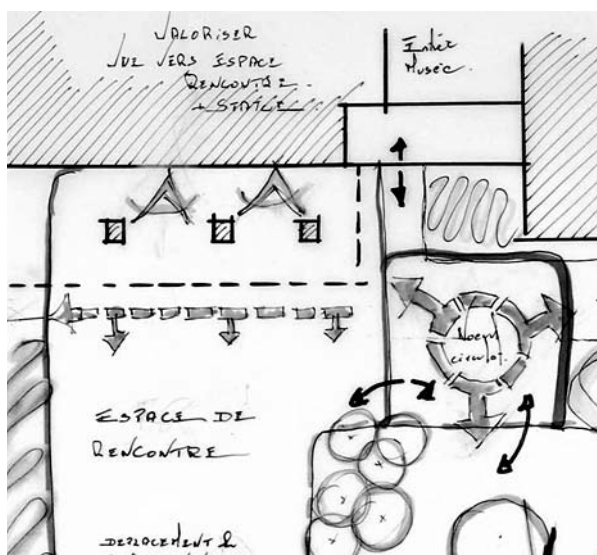 VALORISER
VUE VERS ESPACE
RENCONTRE
+ STATUE.
Entrée
Musée.
Noeud
circulat.
ESPACE DE
RENCONTRE
DEPLACEMENT &